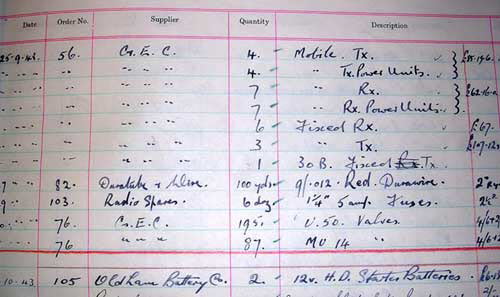 Date Order No. Supplier Quantity Description
25-9-43 56. G.E.C. 4. Mobile Tx.
" " " 4. " Tx. Power Units.
" " " 7 " Rx. £62-16-0
" " " 7 " Rx. Power Units.
" " " 6 Fixed Rx. £67.
" " " 3 " Tx.
" " " 1 30 B. Fixed Tx.
" 82. 100 yds. 9/.012. Red. Durawire.
" 103. Radio Spares. 6 doz. 1¼" 5 amp. Fuses.
76. G.E.C. 195. U.50. Valves.
76 " " " 87. MU 14 "
10-43 105 Oldham Battery Co. 2. 12v. H.D. Starter Batteries.